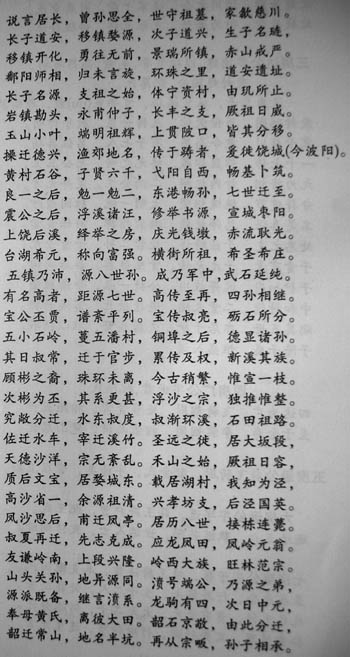 说言居长，曾孙思全，世守祖墓，家歙慈川。
长子道安，移镇婺源，次子道兴，生子名琏，
移镇开化，勇往无前，景瑞所镇，赤山戒严。
鄱阳师相，归未言旋，环珠之里，道安遗址。
长子名源，支祖之始，体宁资村，由玑所止。
岩镇勘头，永甫仲子，长丰之支，厥祖日威。
玉山小叶，端明祖辉，上贯陂口，皆其分移。
操迁德兴，渔郊地名，传于踌者，爰徙饶城(今波阳)。
黄村石谷，子贤六千，弋阳自西，畅基卜筑。
良一之后，勉一勉二，东港畅孙，七世迁至。
震公之后，浮溪诸汪，修举书源，宣城枣阳。
上饶后溪，绎举之房，庆光钱墩，赤流耿光。
台湖希元，称向富强。横街所祖，希圣希庄。
五镇乃沛，源八世孙。成乃军中，武石延纯。
有名高者，距源七世。高传至再，四孙相继。
宝公丕贾，谱紊平列。宝传叔亮，砺石所分。
五小石岭，蔓五潘村，铜埠之后，德显诸孙。
其日叔常，迁于官步，累传及权，新溪其族。
顾彬之裔，珠环未离，今古稍繁，惟宣一枝。
次彬为丕，其系更甚，浮沙之宗，独推惟整。
究敞分迁，水东叔度，叔渐环溪，石田祖路。
佐迁水车，宰迁溪竹。圣远之徒，居大坂段，
天德沙洋，宗无紊乱。禾山之始，厥祖日容，
质后文宝，居婺城东。载居湖村，我知为泾，
高沙省一，余源祖清。兴孝坊支，后泾国英。
凤沙思后，甫迁凤亭。居历八世，接栋连甍。
叔夏再迁，先志克成。应龙凤田，凤岭元翁。
友谦岭南，上段兴隆。岭西大族，旺林范宗。
山头关孙，地异源同。溃号端公，乃源之弟，
源派既备，继言溃系。龙驹有四，次日中元，
奉母黄氏，离彼大田。韶石京敬，由此分迁，
韶迁常山，地名半坑。再从宗畈，孙子相承。